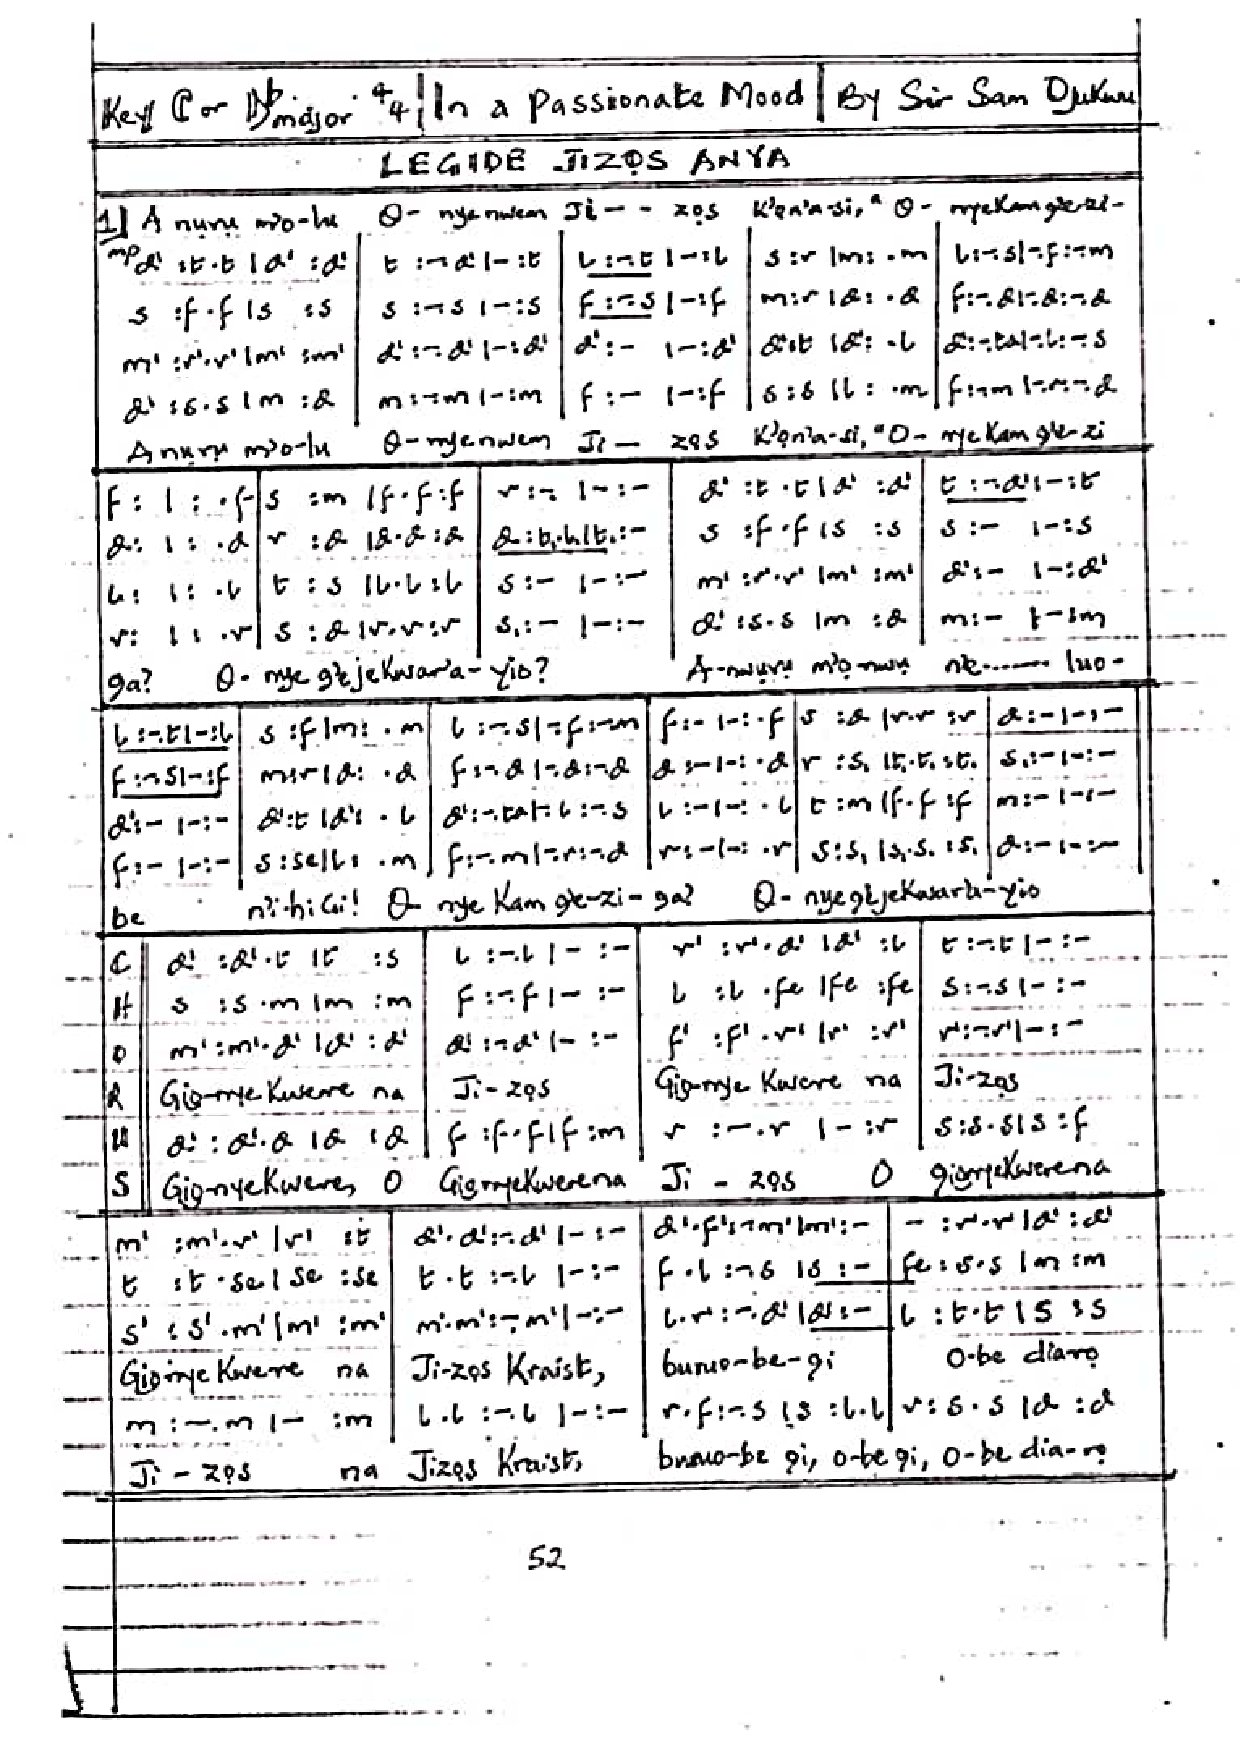 Key C or D♭ major 4/4 | In a Passionate Mood | By Sir Sam Ojukwu
LEGIDE JIZỌS ANYA
1] A nụrụ m'o-lu Ọ- nyenwem Ji - - zọs K'ọn'a-si, " Ọ- nyeKam g'e-zi-
mp d' :t.t | d' :d' | t :-.d' | - :t | l :-.t | - :l | s :r | m : .m | l :-.s | -.f :-.m
s :f.f | s :s | s :-.s | - :s | f :-.s | - :f | m :r | d : .d | f :-.d | -.d :-.d
m' :r'.r' | m' :m' | d' :-.d' | - :d' | d' :- | - :d' | d' :t | d' : .l | d' :-.ta | -.l :-.s
d' :s.s | m :d | m :-.m | - :m | f :- | - :f | s :s | l : .m | f :-.m | -.r :-.d
A nụrụ m'o-lu Ọ-nyenwem Ji - zọs K'ọn'a-si, "O- nyeKam g'e-zi
f : | : .f | s :m | f.f :f | r :- | - :- | d' :t.t | d' :d' | t :-.d' | - :t
d : | : .d | r :d | d.d :d | d :t,.l, | t, :- | s :f.f | s :s | s :- | - :s
l : | : .l | t :s | l.l :l | s :- | - :- | m' :r'.r' | m' :m' | d' :- | - :d'
r : | : .r | s :d | r.r :r | s, :- | - :- | d' :s.s | m :d | m :- | - :m
ga? Ọ- nye g'ejeKwar'a-yio? A-nụrụ m'ọ nwụ n'e------- luo-
l :-.t | - :l | s :f | m : .m | l :-.s | -.f :-.m | f :- | - : .f | s :d | r.r :r | d :- | - :-
f :-.s | - :f | m :r | d : .d | f :-.d | -.d :-.d | d :- | - : .d | r :s, | t,.t, :t, | s, :- | - :-
d' :- | - :- | d' :t | d' : .l | d' :-.ta | -.l :-.s | l :- | - : .l | t :m | f.f :f | m :- | - :-
f :- | - :- | s :se | l : .m | f :-.m | -.r :-.d | r :- | - : .r | s :s, | s,.s, :s, | d :- | - :-
be n'i-hi Gi! Ọ- nye Kam g'e-zi-ga? Ọ- nyeg'ejeKwar'a-yio
C d' :d'.t | t :s | l :-.l | - :- | r' :r'.d' | d' :l | t :-.t | - :-
H s :s.m | m :m | f :-.f | - :- | l :l.fe | fe :fe | s :-.s | - :-
O m' :m'.d' | d' :d' | d' :-.d' | - :- | f' :f'.r' | r' :r' | r' :-.r' | - :-
R Gịọ-nyeKwere na Ji-zọs Gịọ-nye Kwere na Ji-zọs
U d' :d'.d | d :d | f :f.f | f :m | r :-.r | - :r | s :s.s | s :f
S Gịọ-nyeKwere, O GịọnyeKwerena Ji - zọs O gịọnyeKwerena
m' :m'.r' | r' :t | d'.d' :-.d' | - :- | d'.f' :-.m' | m' :- | - :r'.r' | d' :d'
t :t.se | se :se | t.t :-.l | - :- | f.l :-.s | s :- | fe :s.s | m :m
s' :s'.m' | m' :m' | m'.m' :-.m' | - :- | l.r' :-.d' | d' :- | l :t.t | s :s
Gịọ-nye Kwere na Ji-zọs Kraist, bunuo-be-gi O-be diarọ
m :-.m | - :m | l.l :-.l | - :- | r.f :-.s | s :l.l | r :s.s | d :d
Ji - zọs na Jizọs Kraist, bunuo-be gi, o-be gi, O-be dia-rọ
52